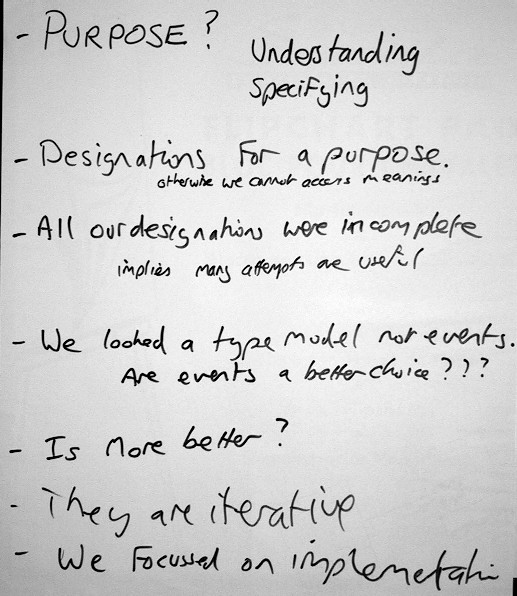 - PURPOSE?
Understanding
Specifying
- Designations for a purpose.
otherwise we cannot access meanings
- All our designations were incomplete
implies many attempts are useful
- We looked a type model not events.
Are events a better choice???
- Is more better?
- They are iterative
- We focussed on implemetati